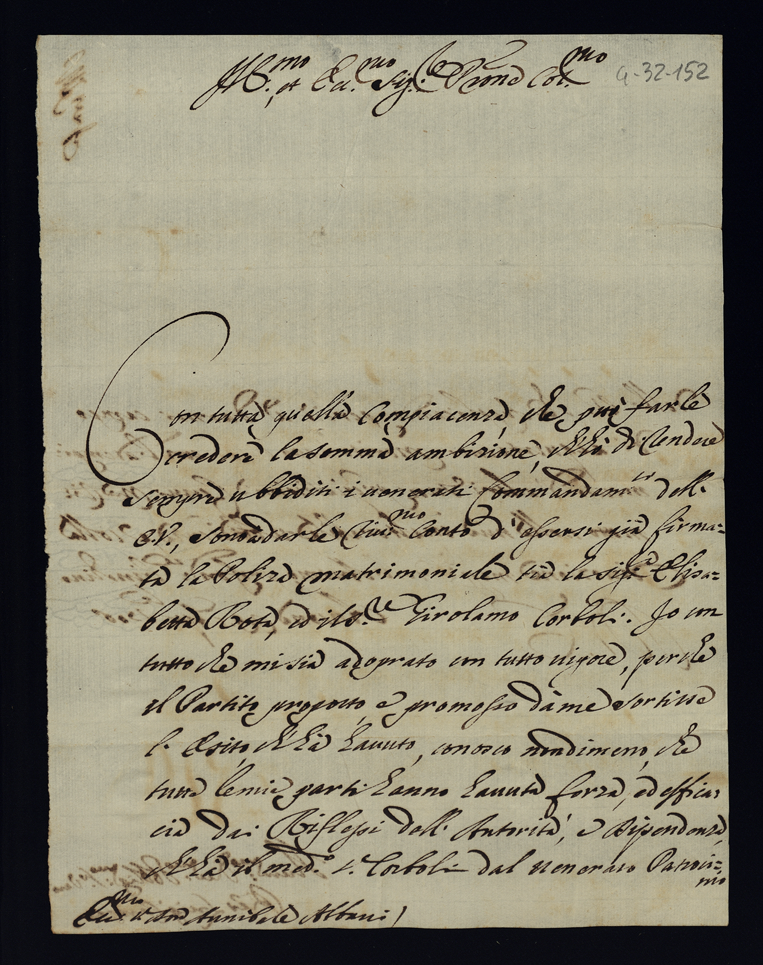 Ill.mo et Ecc.mo Sig.re Prone Col.mo
4-32-152
Con tutta quella Compiacenza, che può farle
credere la somma ambizione, ch'hò di rendere
sempre ubbiditi i venerati Commandam.ti dell'
E.V., sono à darle Conto d'essersi già firma=
ta la Poliza matrimoniale trà la Sig.ra Elisa=
betta Rota, ed il S.re Girolamo Corboli. Io con
tutto che mi sia adoprato con tutto vigore, perche
il Partito proposto, e promosso dà me sortisse
l'Esito, ch'hà havuto, conosco nondimeno, che
tutte le mie parti hanno havuta forza, ed effica=
cia dai Riflessi dell'Autorità, e Dipendenza,
ch'hà il med.o S. Corboli dal venerato Patroci=
nio
Ecc.mo Annibale Albani